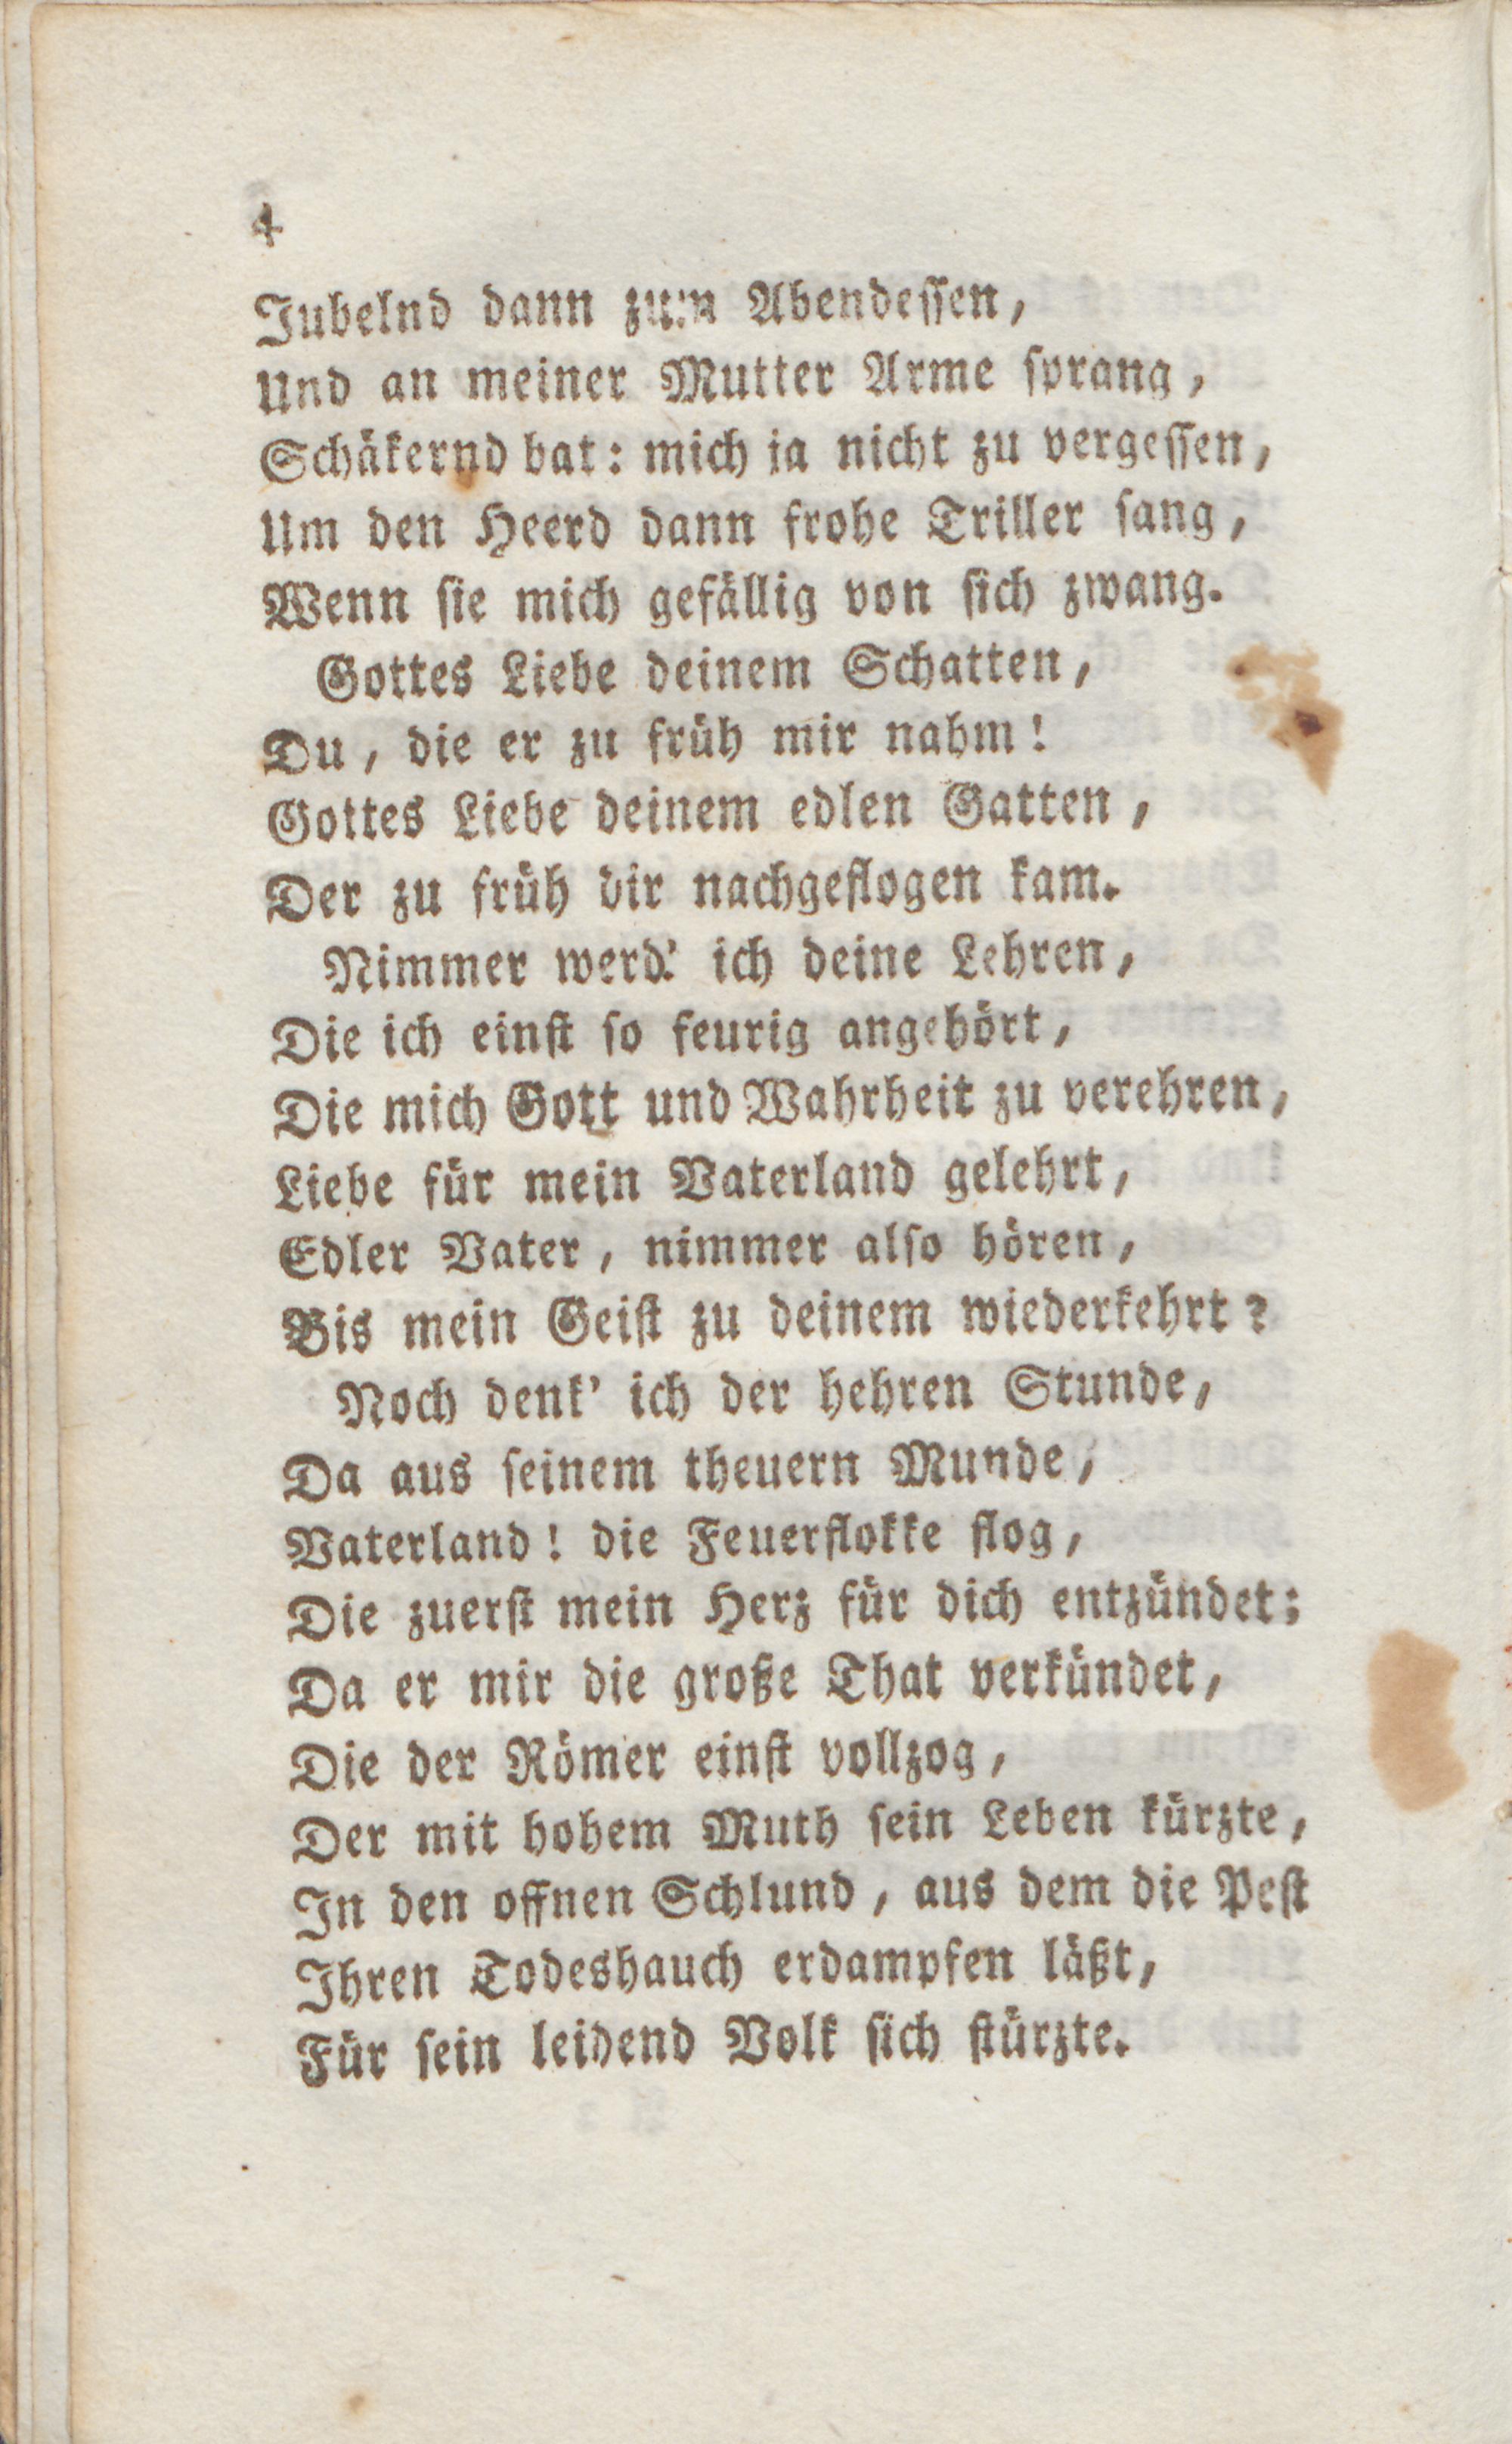 4
Jubelnd dann zum Abendessen,
Und an meiner Mutter Arme sprang,
Schäkernd bat: mich ja nicht zu vergessen,
Um den Heerd dann frohe Triller sang,
Wenn sie mich gefällig von sich zwang.
Gottes Liebe deinem Schatten,
Du, die er zu früh mir nahm!
Gottes Liebe deinem edlen Gatten,
Der zu früh dir nachgeflogen kam.
Nimmer werd' ich deine Lehren,
Die ich einst so feurig angehört,
Die mich Gott und Wahrheit zu verehren,
Liebe für mein Vaterland gelehrt,
Edler Vater, nimmer also hören,
Bis mein Geist zu deinem wiederkehrt?
Noch denk' ich der hehren Stunde,
Da aus seinem theuern Munde,
Vaterland! die Feuerflokke flog,
Die zuerst mein Herz für dich entzündet;
Da er mir die große That verkündet,
Die der Römer einst vollzog,
Der mit hohem Muth sein Leben kürzte,
In den offnen Schlund, aus dem die Pest
Ihren Todeshauch erdampfen läßt,
Für sein leidend Volk sich stürzte.